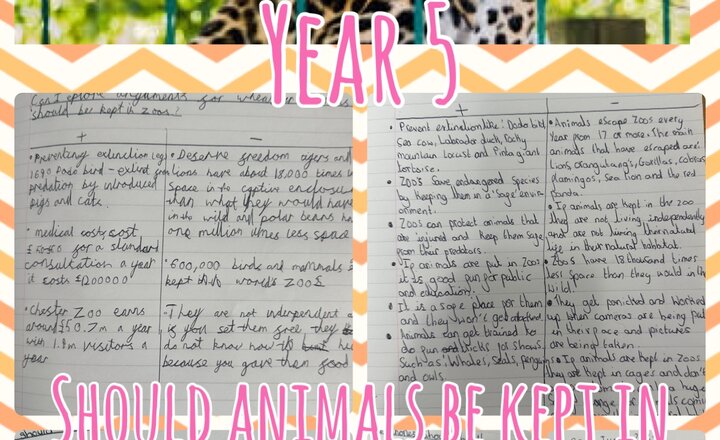 YEAR 5
Can I explore arguments for whether
should be kept in zoos?
+
-
• Preventing extinction (eg
1690 Dodo bird - extinct from
predation by introduced
pigs and cats.
• medical costs cost
£50-60 for a standard
consultation a year
it costs
• Chester Zoo earns
around £50.7m a year
with 1.9m visitors a
year
• Deserve freedom
lions have about 18,000 times
space in to captive enclosur
than what they would have
in the wild and polar bears ha
one million times less space
• 600,000 birds and mammals
kept world's zoos
• They are not independent
if you set them free they
do not know how to
because you gave them food
+
-
• Prevent extinction like: Dodo bird,
Sea cow, Labrador duck, Rocky
mountain locust and Pinta giant
tortoise.
• Zoos save endangered species
by keeping them in a 'safe' envir-
onment.
• Zoos can protect animals that
are injured and keep them safe
from their predators.
• If animals are put in zoos
it is good fun for public
and education.
• It is a safe place for them
and they won't get
• Animals can get trained to
do fun and tricks to shows.
Such as: Whales, seals, penguins
and owls.
• Animals escape zoos every
year from 17 or more. The main
animals that have escaped are:
Lions, orangutang's, Gorillas, cobras,
flamingos, Sea lion and the red
panda.
• If animals are kept in the zoo
they are not living independently
and are not living their natural
life in their natural habitat.
• Zoos have 18 thousand times
less space than they would in the
wild.
• They get panicked and worked
up when cameras are being put
in their space and pictures
are being taken.
• If animals are kept in zoos
they are kept in cages and don't
huge
SHOULD ANIMALS BE KEPT IN